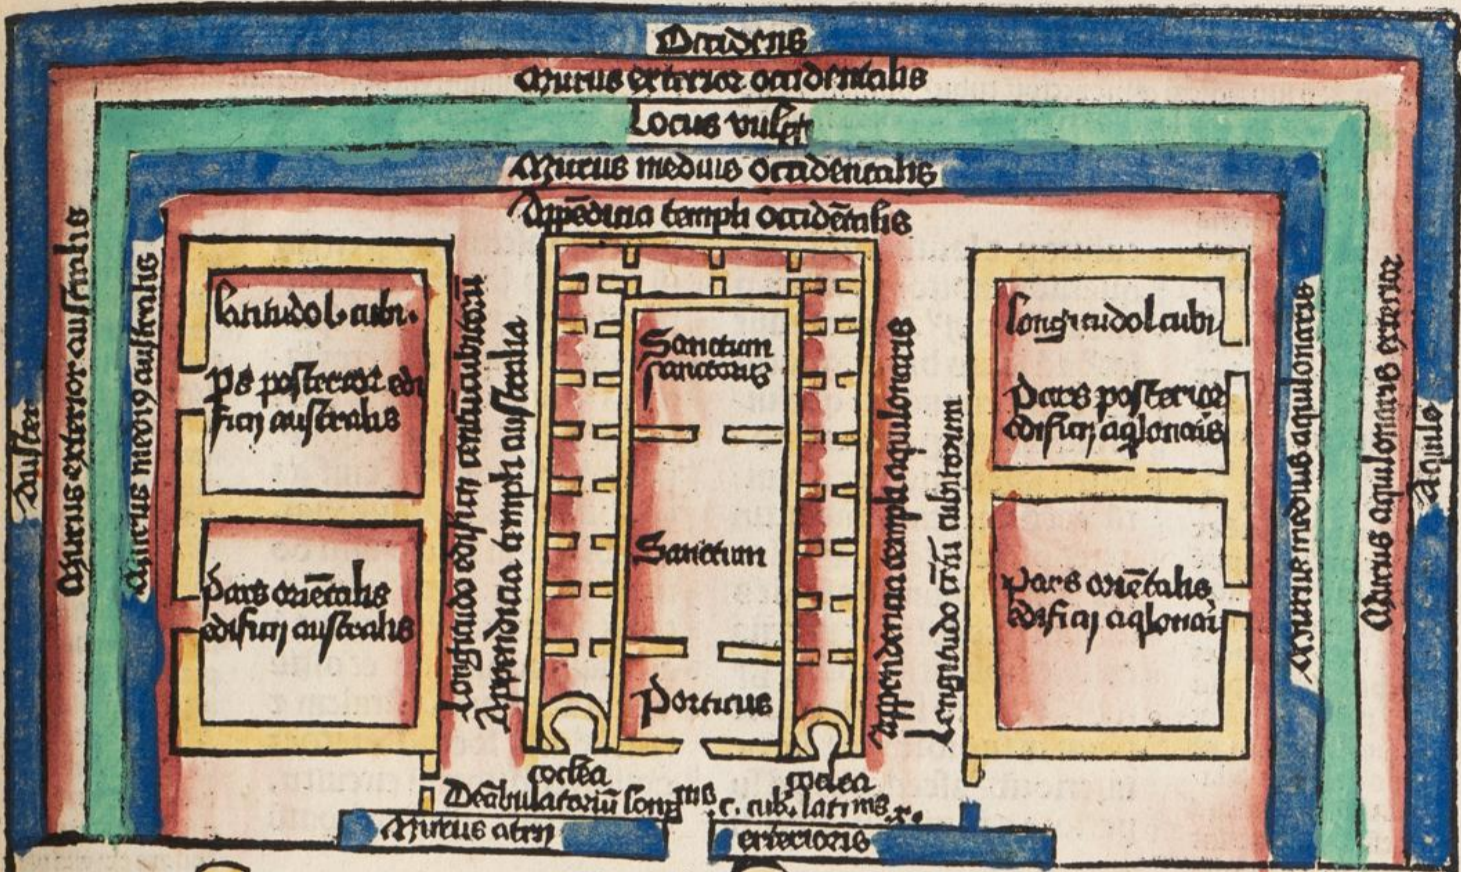 Occidens
Murus exterior occidentalis
Locus vulg
Murus medius occidentalis
Appēdicia templi occidētalis
Auster
Murus exterior australis
Murus medi9 australis
latitudo l. cubi.
Ps posterior edi
ficij australis
Pars oriētalis
edificij australis
Longitudo edificij centū cubitorū
Appendicia templi australia
Sanctum
sanctorum
Sanctum
Porticus
Appendencia templi aquilonaris
Longitudo centū cubitorum
longitudo l cubi
Pars posterior
edificij aqlonaris
Pars oriētalis
edificij aqlonari
Murus medius aquilonaris
Murus aquilonaris exterior
Aquilo
coclea
coclea
Deābulatoriū long mis . c. cub. latitinis . x.
Murus atrij
exterioris